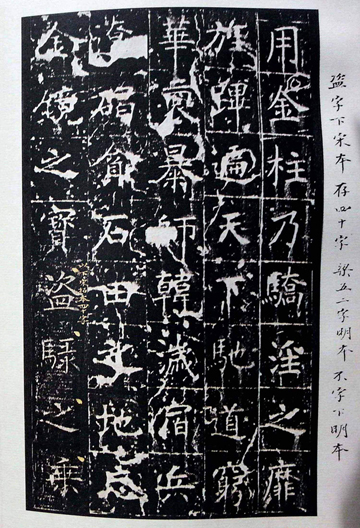 盜字下宋本存四十字 五二字明本 不字下明本
用金柱乃驕淫之靡
旌蹕遍天下馳道窮
華裔暴師韓濊宿兵
碣貪石田之地忘
金鏡之寶盜驪之乘